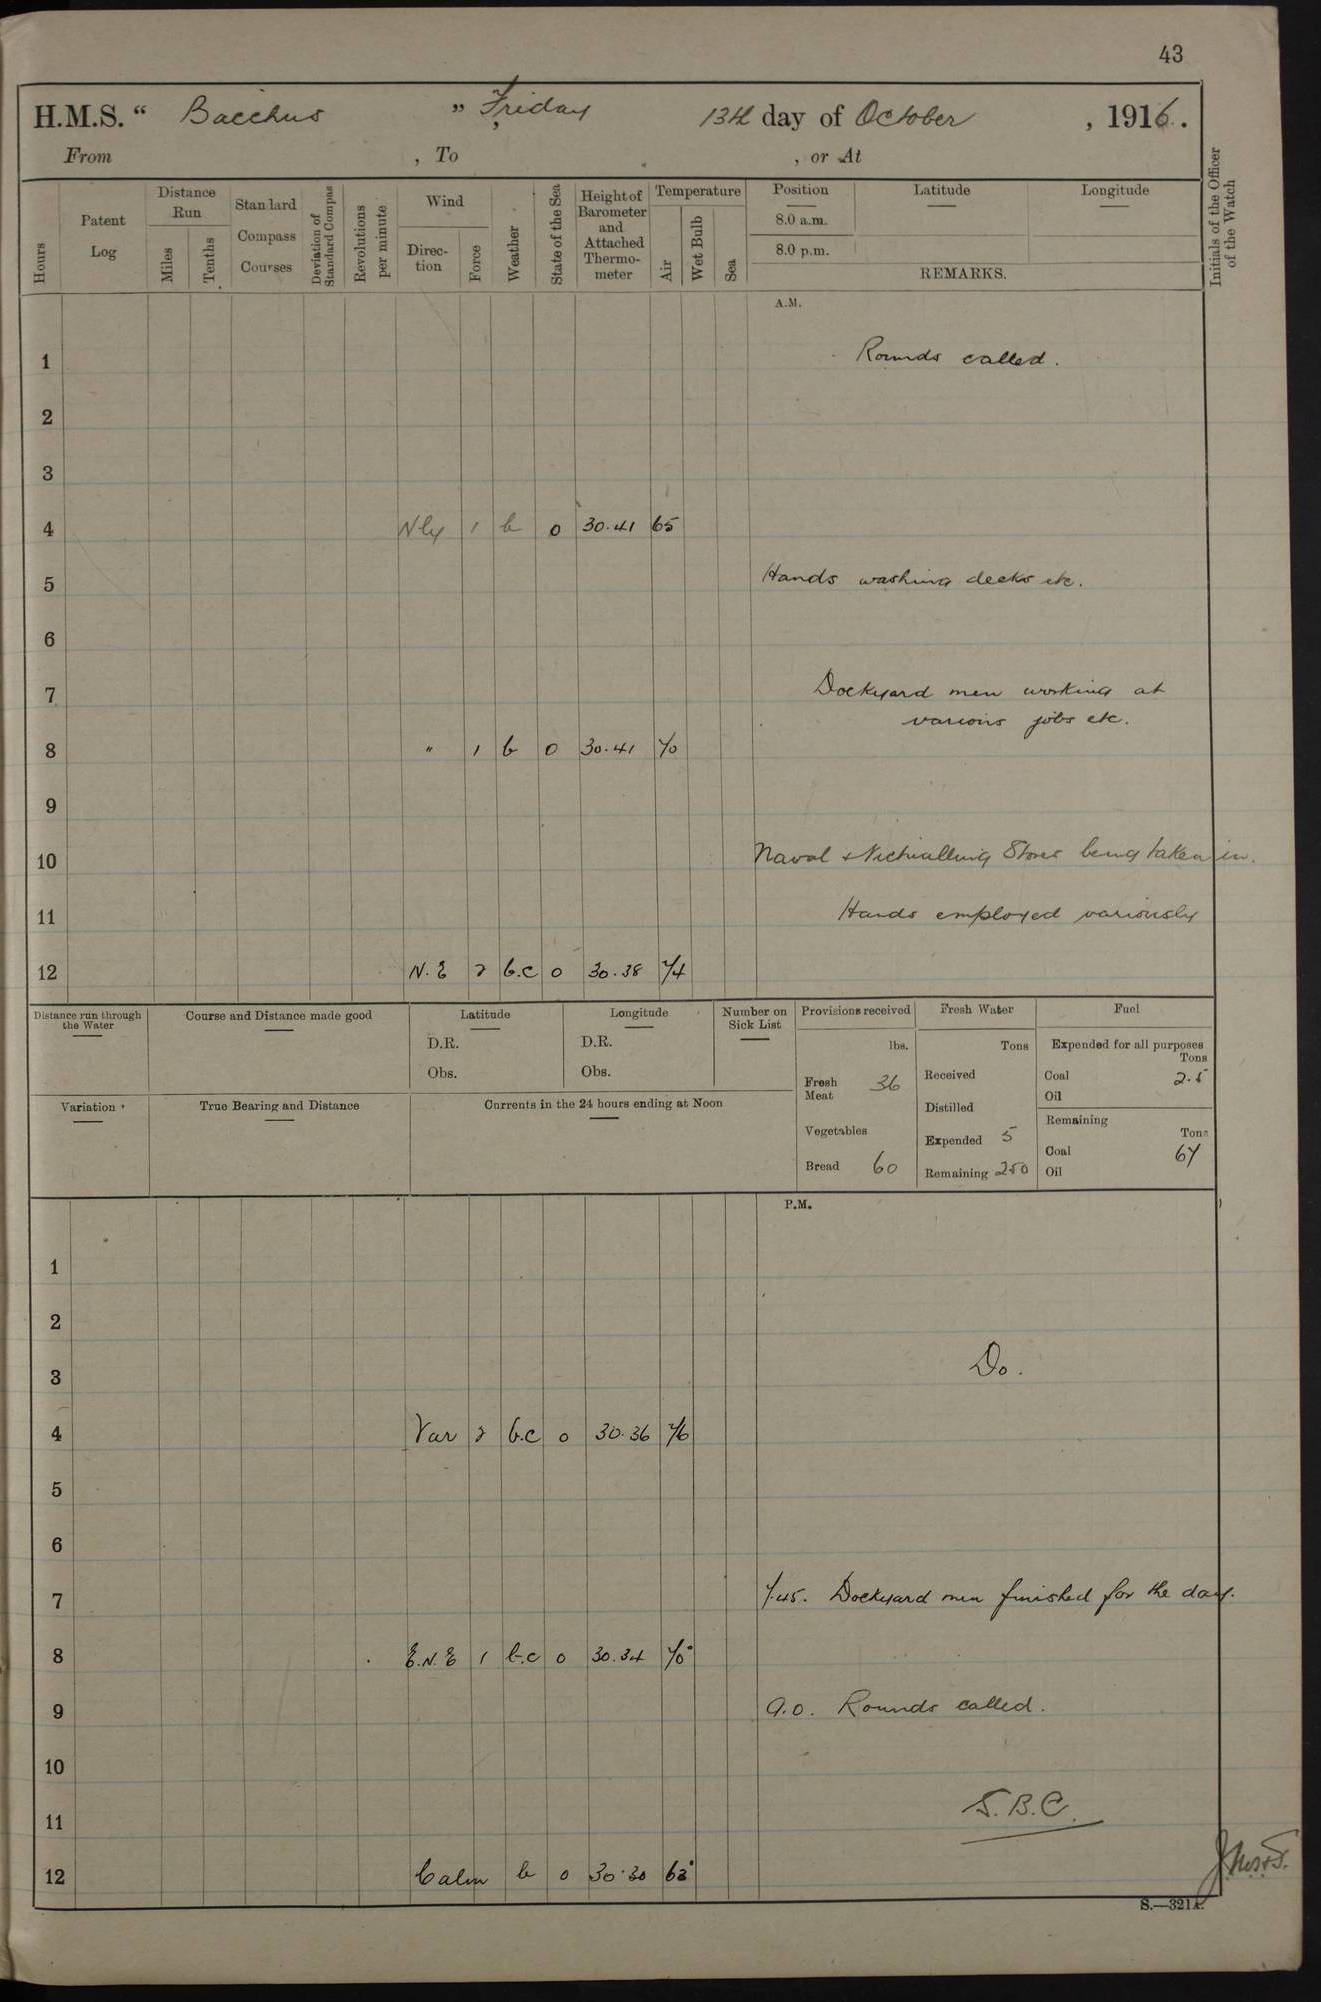 43
H.M.S. “ Bacchus ” Friday 13th day of October , 1916.
From , To , or At
Hours
Patent Log
Distance Run
Miles
Tenths
Standard Compass Courses
Deviation of Standard Compass
Revolutions per minute
Wind
Direction
Force
Weather
State of the Sea
Height of Barometer and Attached Thermometer
Temperature
Air
Wet Bulb
Sea
Position
8.0 a.m.
8.0 p.m.
Latitude
Longitude
REMARKS.
Initials of the Officer of the Watch
A.M.
1 Rounds called.
2
3
4 Nly 1 b 0 30.41 65
5 Hands washing decks etc.
6
7 Dockyard men working at
various jobs etc.
8 " 1 b 0 30.41 70
9
10 Naval & Victualling Stores being taken in.
11 Hands employed variously
12 N.E 2 b.c 0 30.38 74
Distance run through the Water
Course and Distance made good
Latitude
D.R.
Obs.
Longitude
D.R.
Obs.
Number on Sick List
Provisions received
lbs.
Fresh Meat 36
Vegetables
Bread 60
Fresh Water
Tons
Received
Distilled
Expended 5
Remaining 250
Fuel
Expended for all purposes
Tons
Coal 2.5
Oil
Remaining
Tons
Coal 67
Oil
Variation
True Bearing and Distance
Currents in the 24 hours ending at Noon
P.M.
1
2
3 Do.
4 Var 2 b.c 0 30.36 76
5
6
7 7.45. Dockyard men finished for the day.
8 E.N.E 1 b.c 0 30.34 70°
9 9.0. Rounds called.
10
11 S.B.C.
12 Calm b 0 30.30 63°
S.—321A.